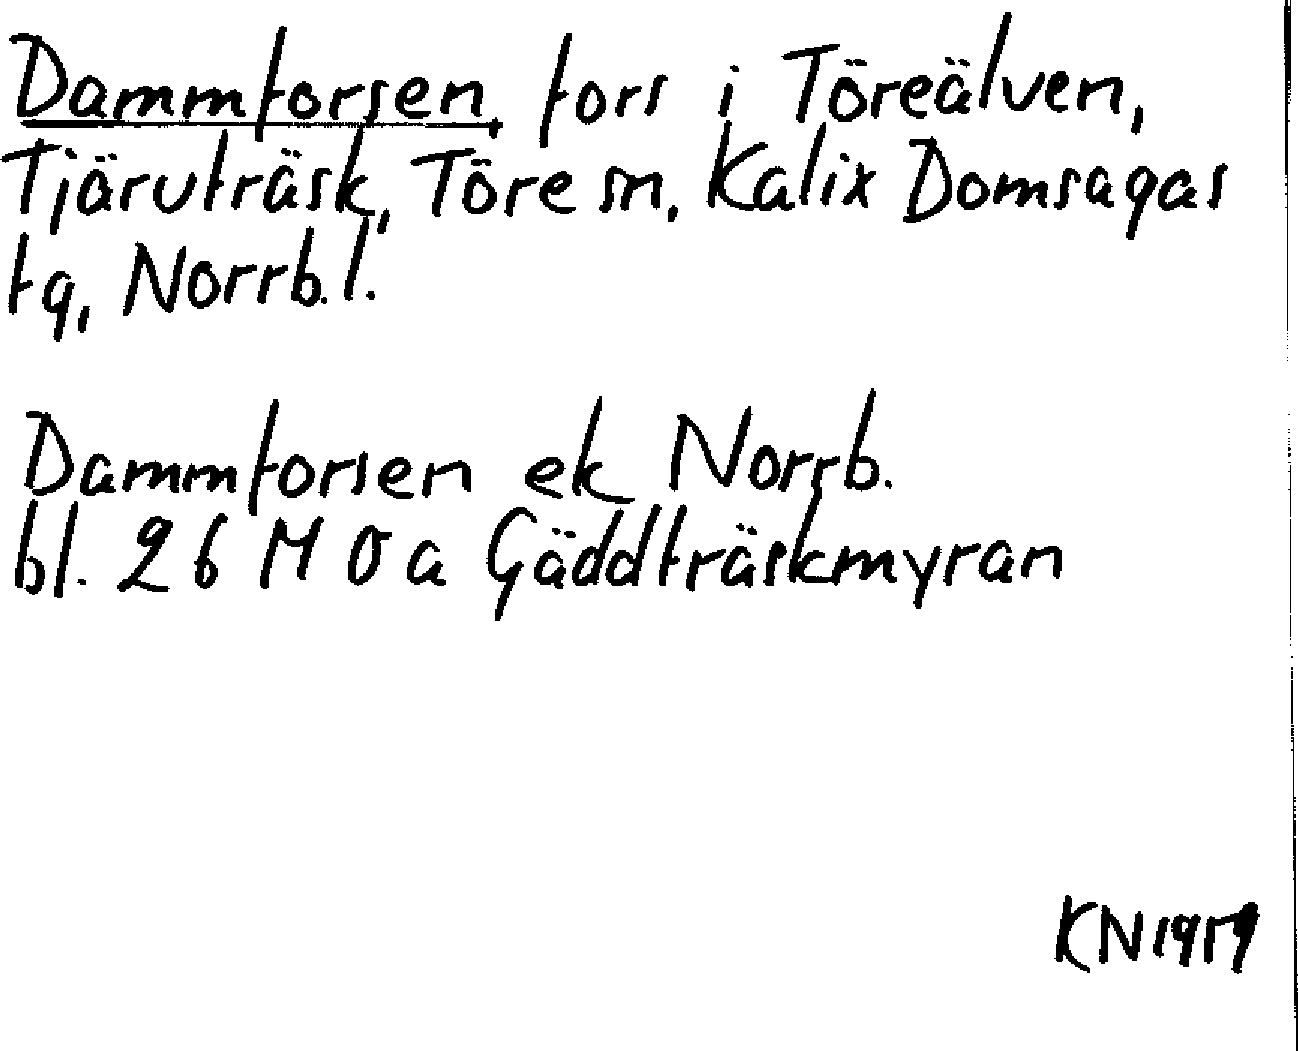 Dammforsen, fors i Töreälven,
Tjäruträsk, Töre sn, Kalix Domsagas
tg, Norrb.l.
Dammforsen ek Norrb.
bl. 26 M 0 a Gäddträskmyran
KN 1959